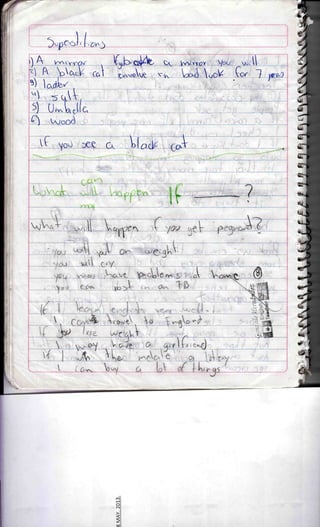 1) A mirror If you broke a mirror you will
2) A black cat involve in bad luck for 7 years
3) ladder
4) salt
5) Umbrella
6) wood
If you see a black cat
can
What will happen If ______?
What will happen if you get pregnant?
you will put on weight.
you will cry
you may have problems at home
you can
If I learn english very well.
I can travel to England
If you lose weight.
I may have a girlfriend
If I
I can buy a lot of things
MAY. 2013